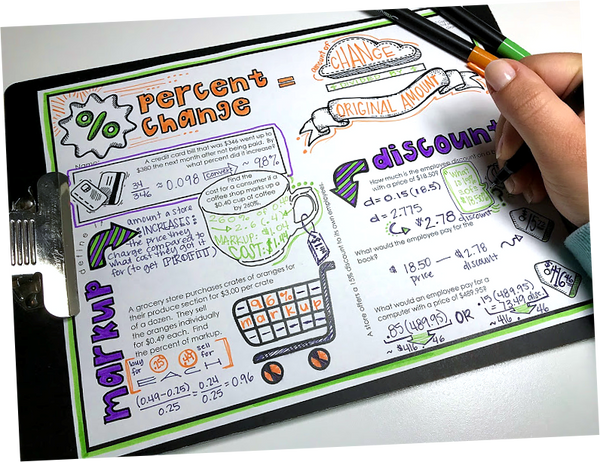 percent
change
=
%
percent of
CHANGE
DIVIDED BY
ORIGINAL AMOUNT
Name
A credit card bill that was $346 went up to
$380 the next month after not being paid. By
what percent did it increase?
34
346
≈ 0.098 convert ~ 9.8%
define
markup
amount a store
INCREASES
the price they
charge compared to
what cost they got it
for (to get PROFIT)
Find the
cost for a consumer if a
coffee shop marks up a
$0.40 cup of coffee
by 260%.
MARKUP:
COST:
A grocery store purchases crates of oranges for
their produce section for $3.00 per crate
of a dozen. They sell
the oranges individually
for $0.49 each. Find
the percent of markup.
buy for .25 .49 sell for
EACH
(0.49-0.25)
0.25
= 0.24
0.25
= 0.96
96%
markup
discount
How much is the employee discount on
with a price of $18.50?
d = 0.15(18.5)
d = 2.775
$2.78 discount
A store offers a 15% discount to its employees.
What would the employee pay for the
book?
$18.50 - $2.78
price discount
$15.72
What would an employee pay for a
computer with a price of $489.95?
.85(489.95) OR .15(489.95)
≈ $416.46
$416.46